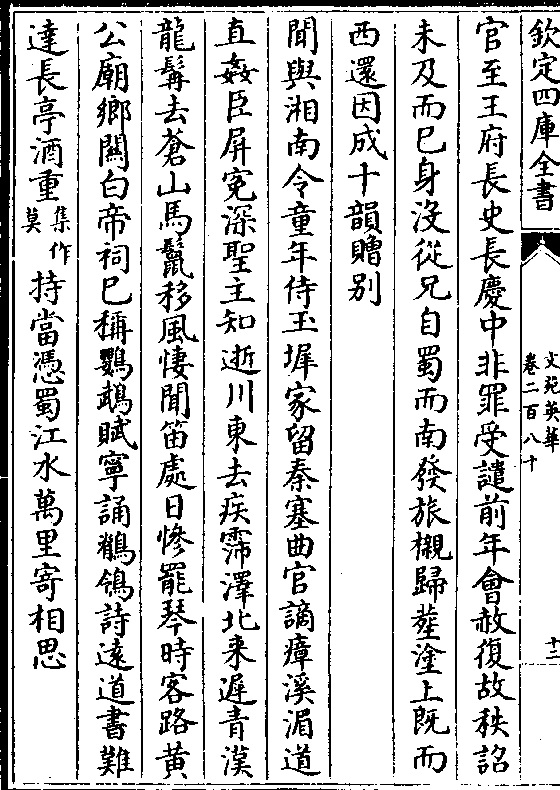 欽定四庫全書
文苑英華
卷二百八十
十二
官至王府長史長慶中非罪受譴前年會赦復故秩詔
未及而已身沒從兄自蜀而南發旅櫬歸塟塗上既而
西還因成十韻贈别
聞與湘南令童年侍玉墀家留秦塞曲官謫瘴溪湄道
直姦臣屏寃深聖主知逝川東去疾霈澤北来遲青漢
龍髯去蒼山馬鬛移風悽聞笛處日慘罷琴時客路黄
公廟鄉關白帝祠巳稱鸚鵡賦寧誦鶺鴒詩遠道書難
達長亭酒重集作莫持當憑蜀江水萬里寄相思